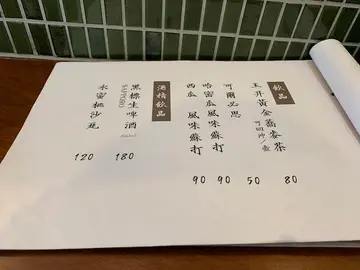 飲品
玉井黃金蕎麥茶 可回沖/壺 80
可爾必思 50
哈密瓜 風味蘇打 90
西瓜 風味蘇打 90
酒精飲品
黑標生啤酒 180
SAPPORO
水蜜桃沙瓦 120